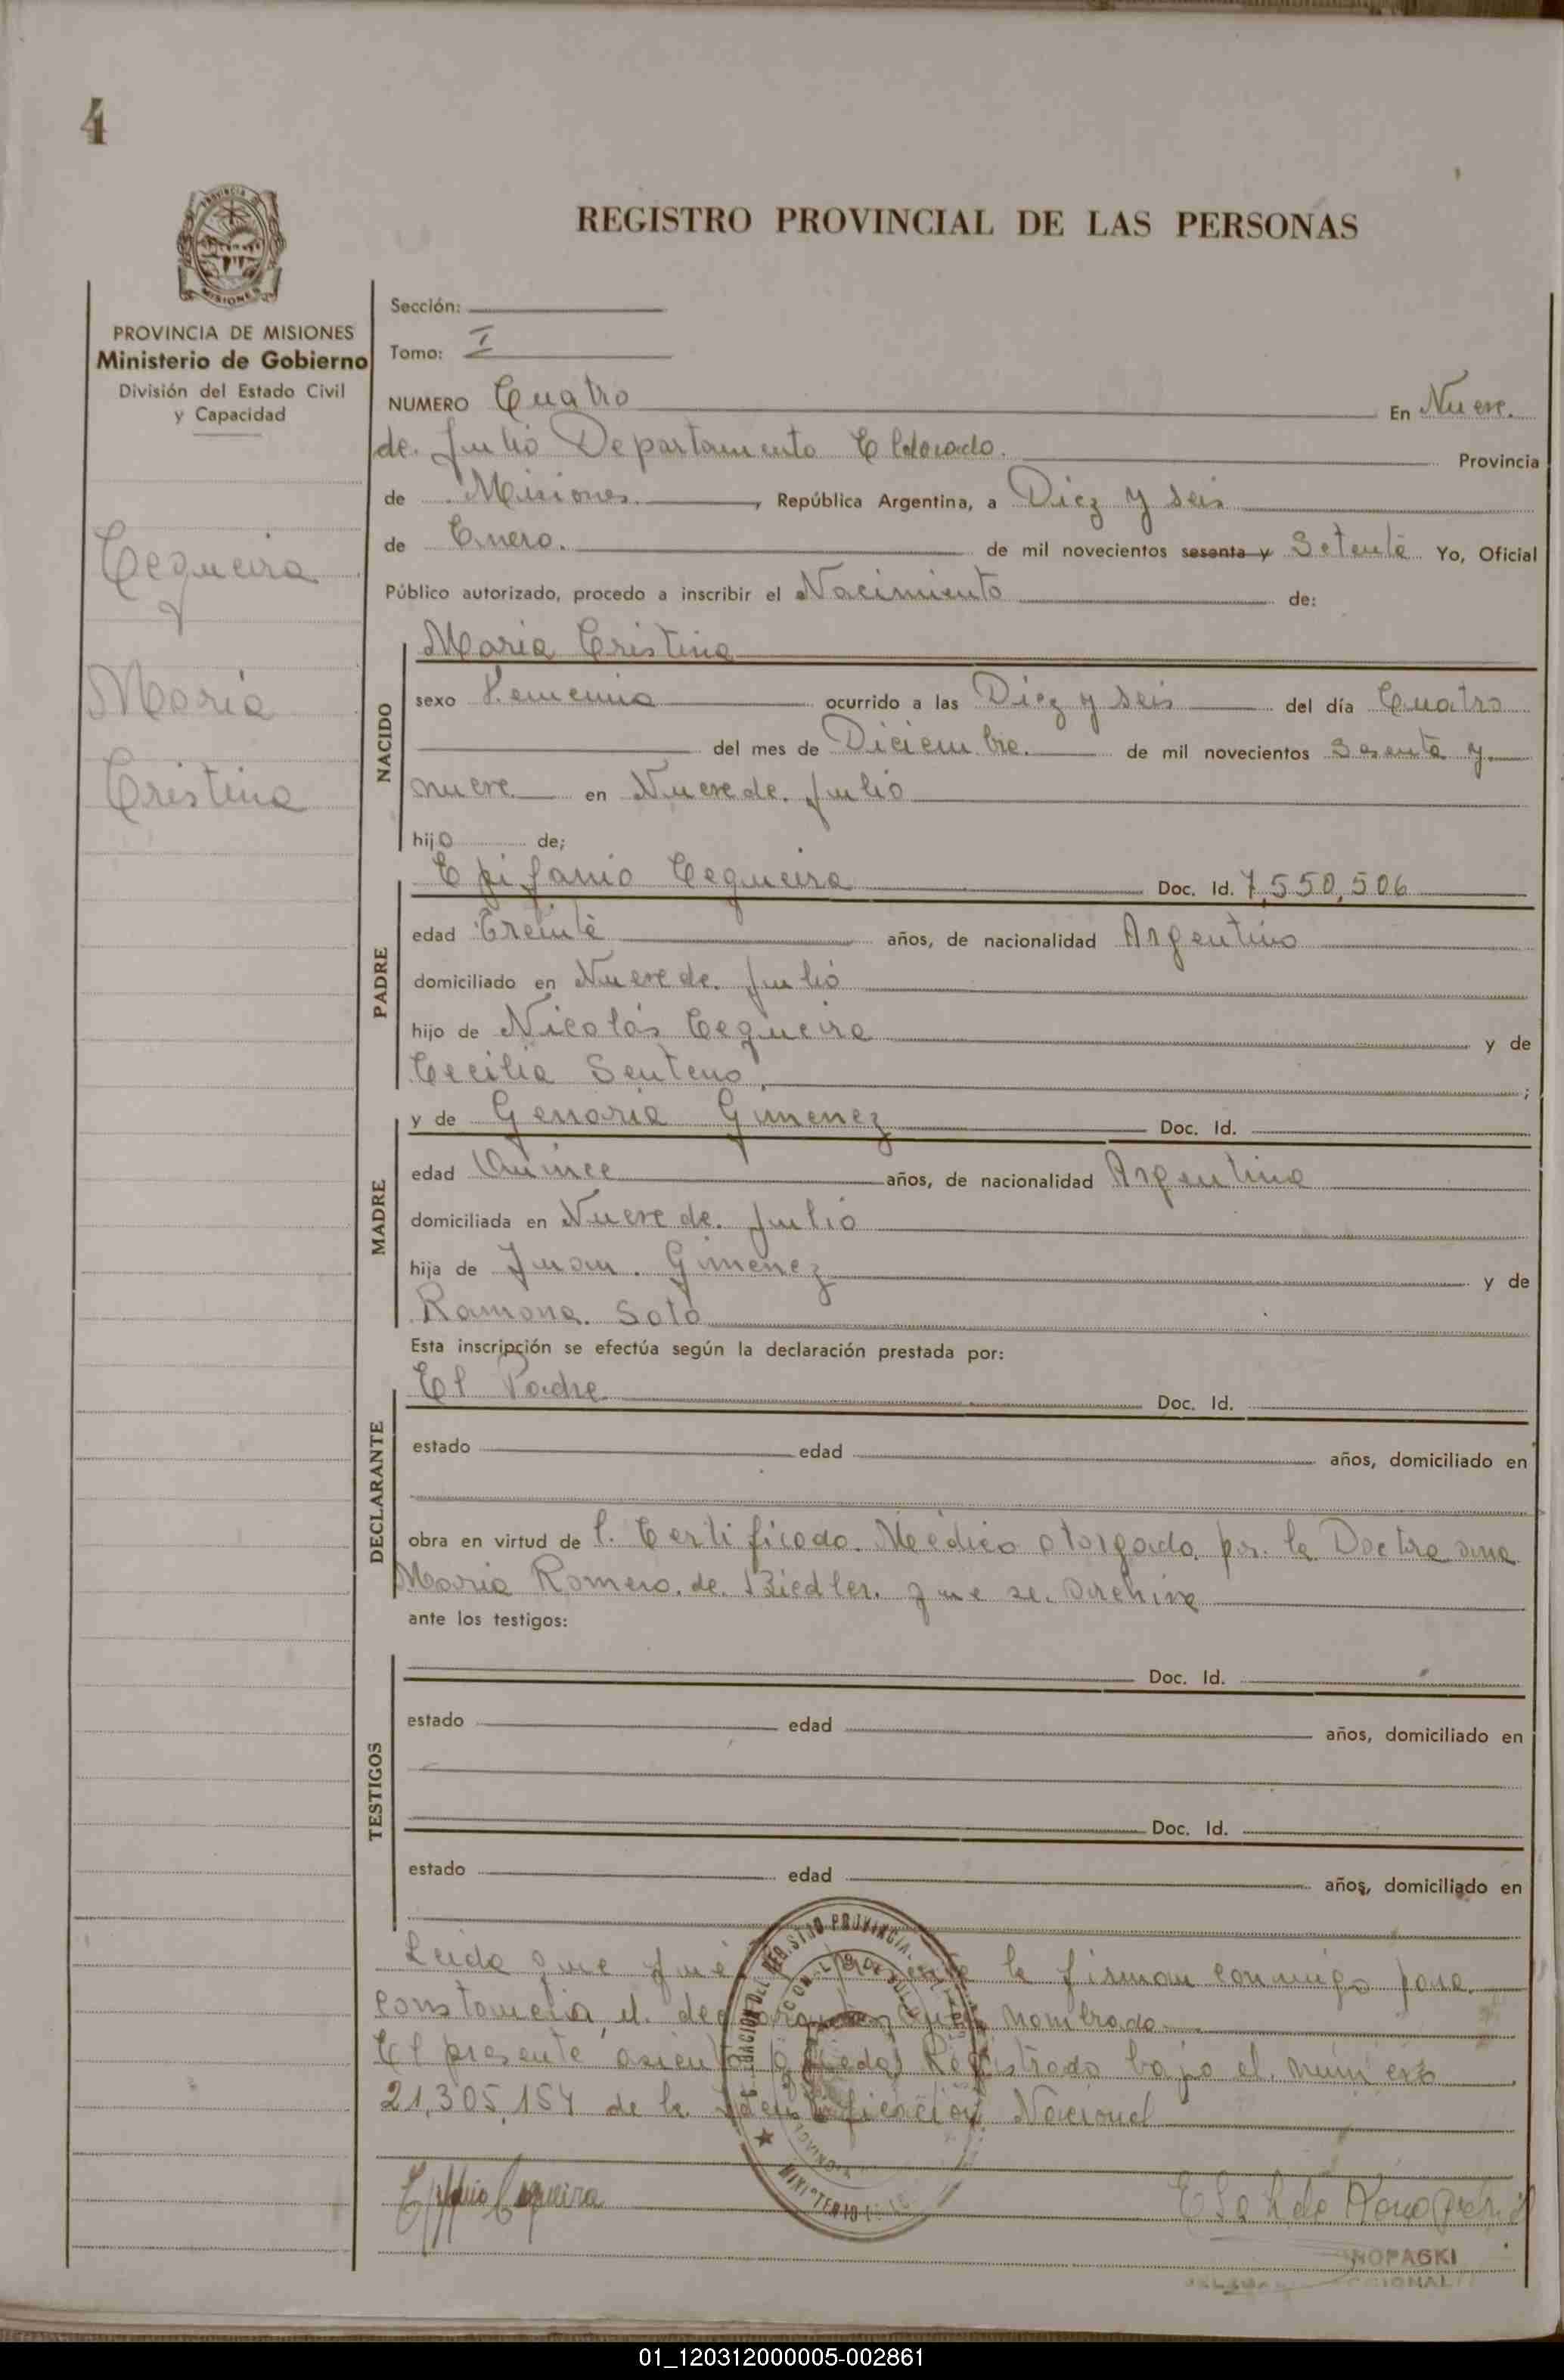 4
REGISTRO PROVINCIAL DE LAS PERSONAS
PROVINCIA DE MISIONES
Ministerio de Gobierno
División del Estado Civil
y Capacidad
Cequeira
Maria
Cristina
Sección:
Tomo: I
NUMERO Cuatro En Nueve
de Julio Departamento Eldorado. Provincia
de Misiones, República Argentina, a Diez y seis
de Enero. de mil novecientos sesenta y Setenta Yo, Oficial
Público autorizado, procedo a inscribir el Nacimiento de:
NACIDO
Maria Cristina
sexo Femenino ocurrido a las Diez y seis del día Cuatro
del mes de Diciembre. de mil novecientos Sesenta y
nueve en Nueve de Julio
hijo de;
PADRE
Epifanio Cequeira Doc. Id. 7,550,506
edad Treinta años, de nacionalidad Argentino
domiciliado en Nueve de Julio
hijo de Nicolás Cequeira y de
Cecilia Senteno ;
MADRE
y de Genaria Gimenez Doc. Id.
edad Quince años, de nacionalidad Argentina
domiciliada en Nueve de Julio
hija de Juan Gimenez y de
Ramona Soto
Esta inscripción se efectúa según la declaración prestada por:
DECLARANTE
El Padre Doc. Id.
estado edad años, domiciliado en
obra en virtud de l. Certificado Medico otorgado por la Doctora Ana
Maria Romero de Biedler. que se archiva
ante los testigos:
TESTIGOS
Doc. Id.
estado edad años, domiciliado en
Doc. Id.
estado edad años, domiciliado en
Leida que fué la firman conmigo para
constancia, el declarante nombrado
El presente asiento queda Registrado bajo el número
21,305,154 de la Identificación Nacional
Epifanio Cequeira
NOPASKI
01_120312000005-002861